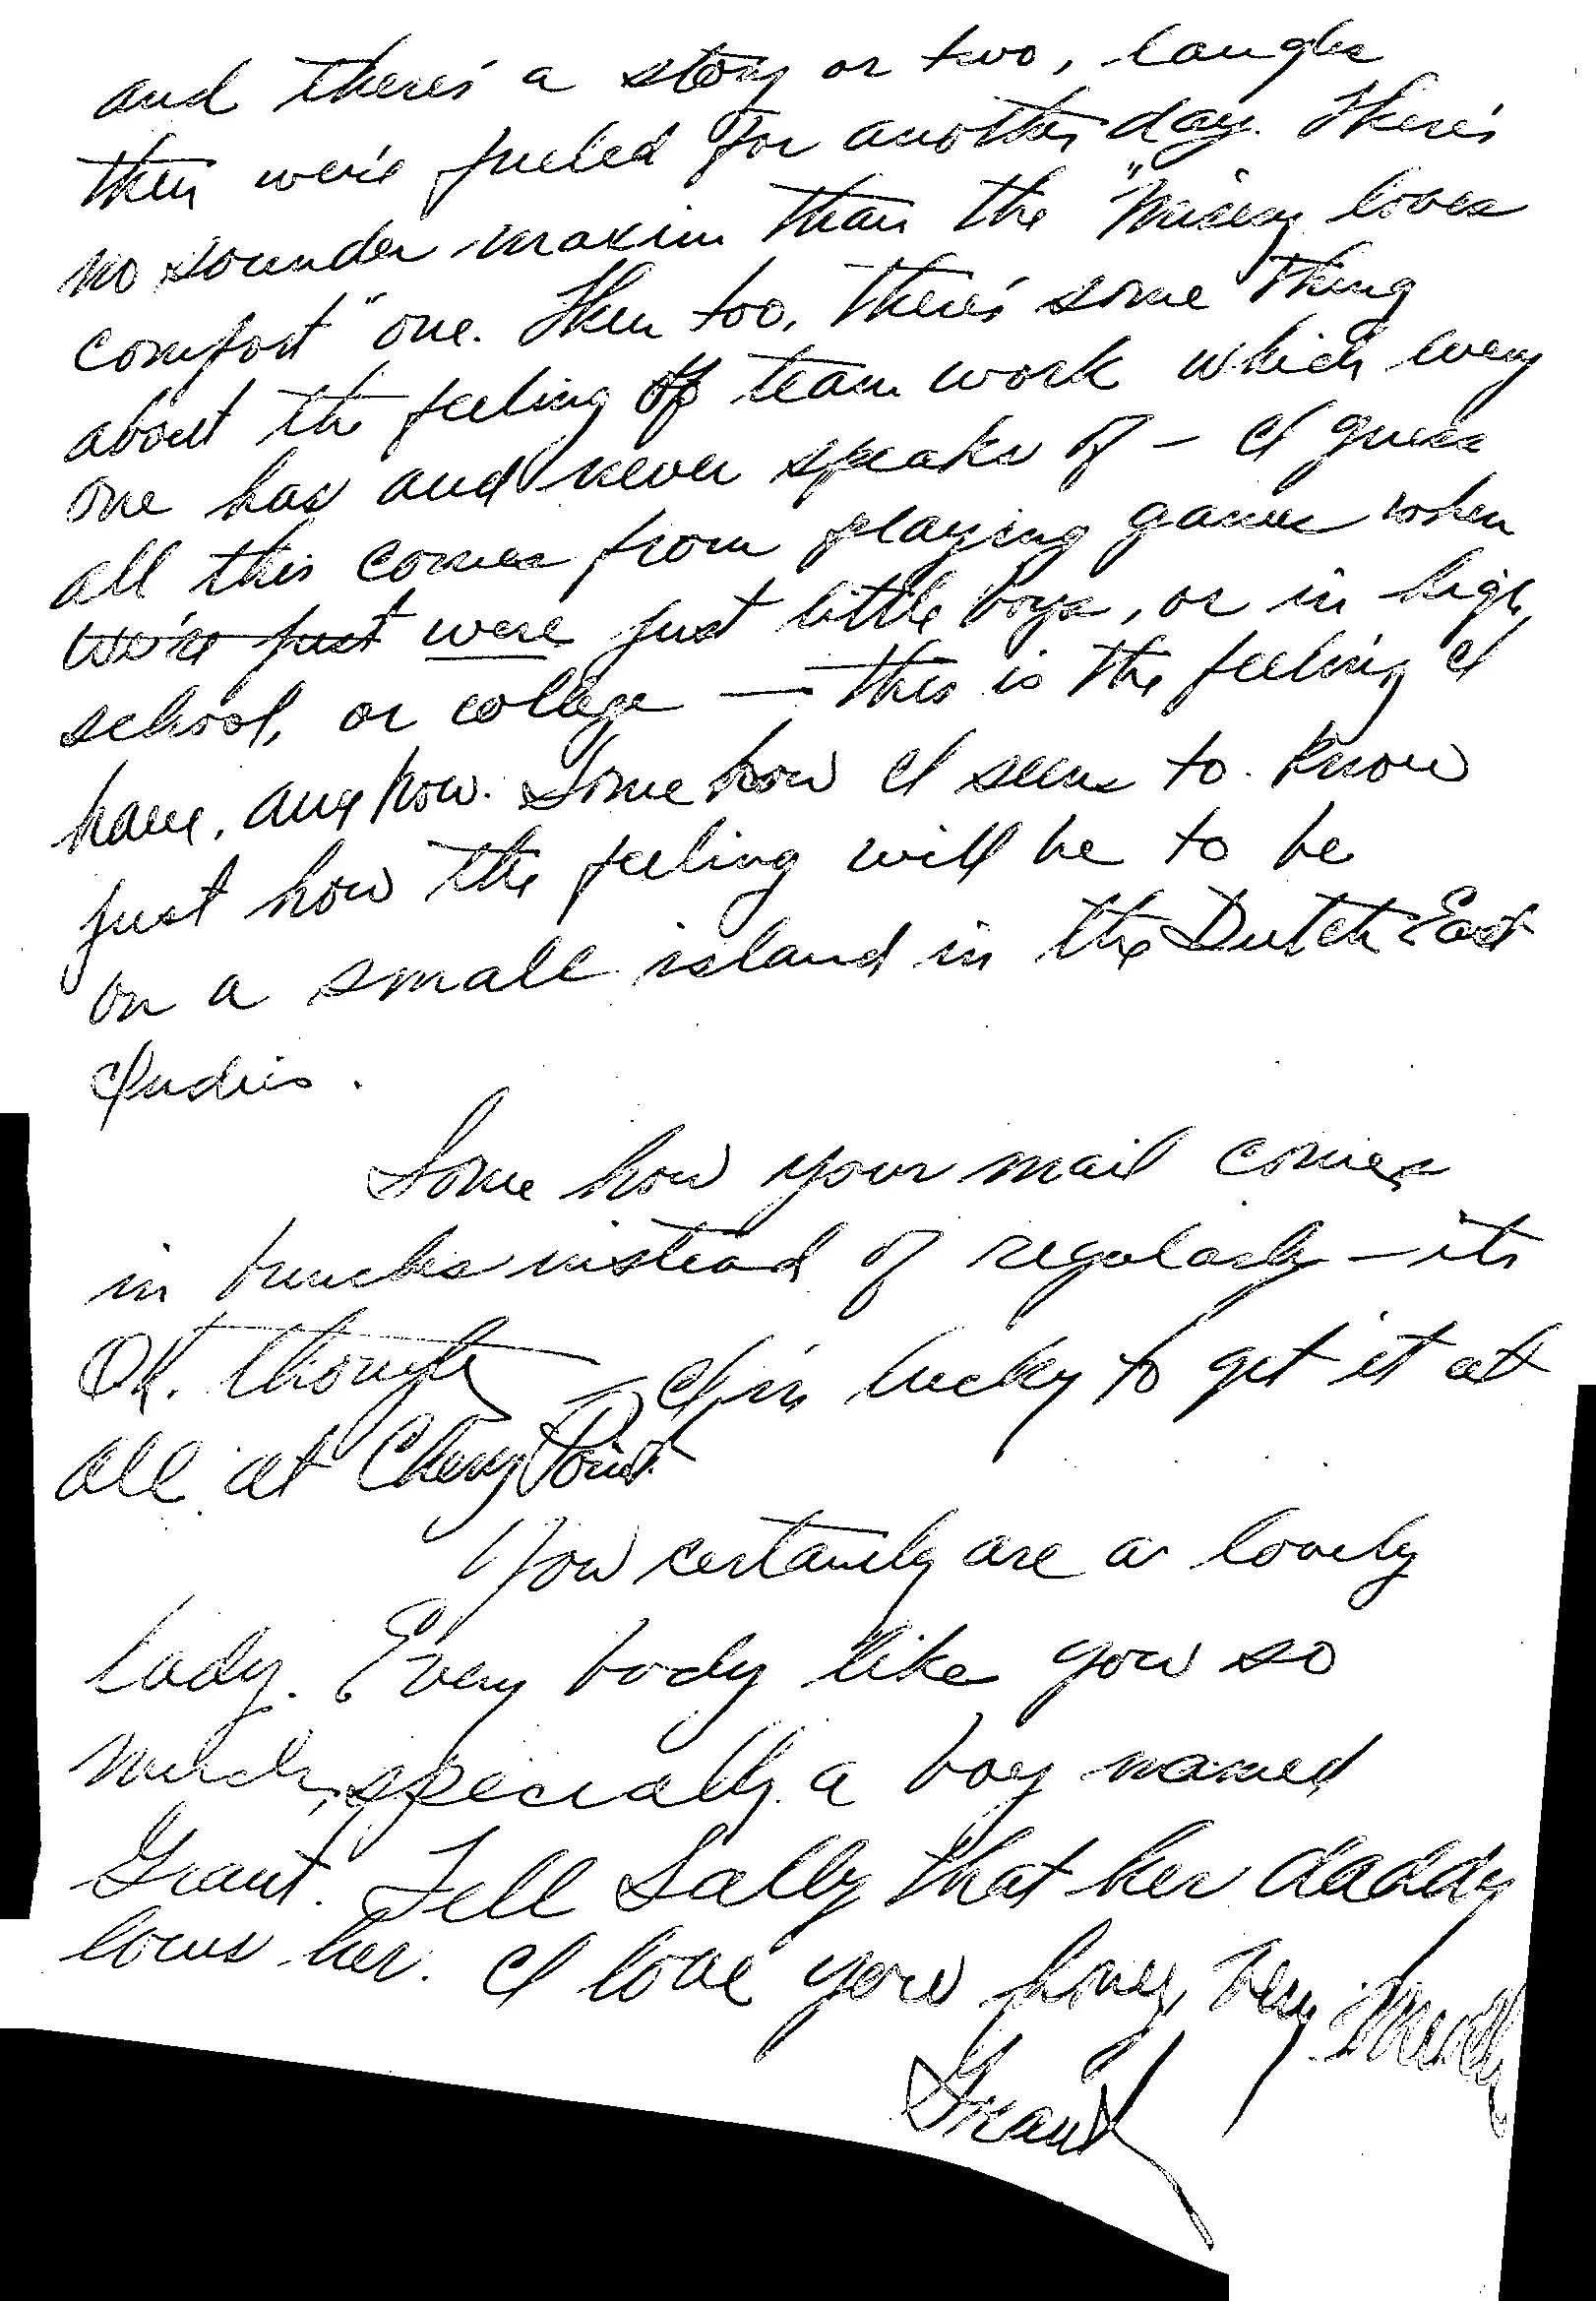 and there's a story or two, laughs
then we're fueled for another day. There's
no sounder maxim than the "Misery loves
comfort" one. Then too, there's some thing
about the feeling of team work which every
one has and never speaks of — I guess
all this comes from playing games when
we're just were just little boys, or in high
school, or college — this is the feeling I
have, any how. Some how I seem to know
just how the feeling will be to be
on a small island in the Dutch East
Indies.
Some how your mail comes
in bunches instead of regularly — its
OK. though — I'm lucky to get it at
all at Cherry Point
You certainly are a lovely
lady. Every body like you so
much, specially a boy named
Grant. Tell Sally that her daddy
loves her. I love you honey, very much
Grant